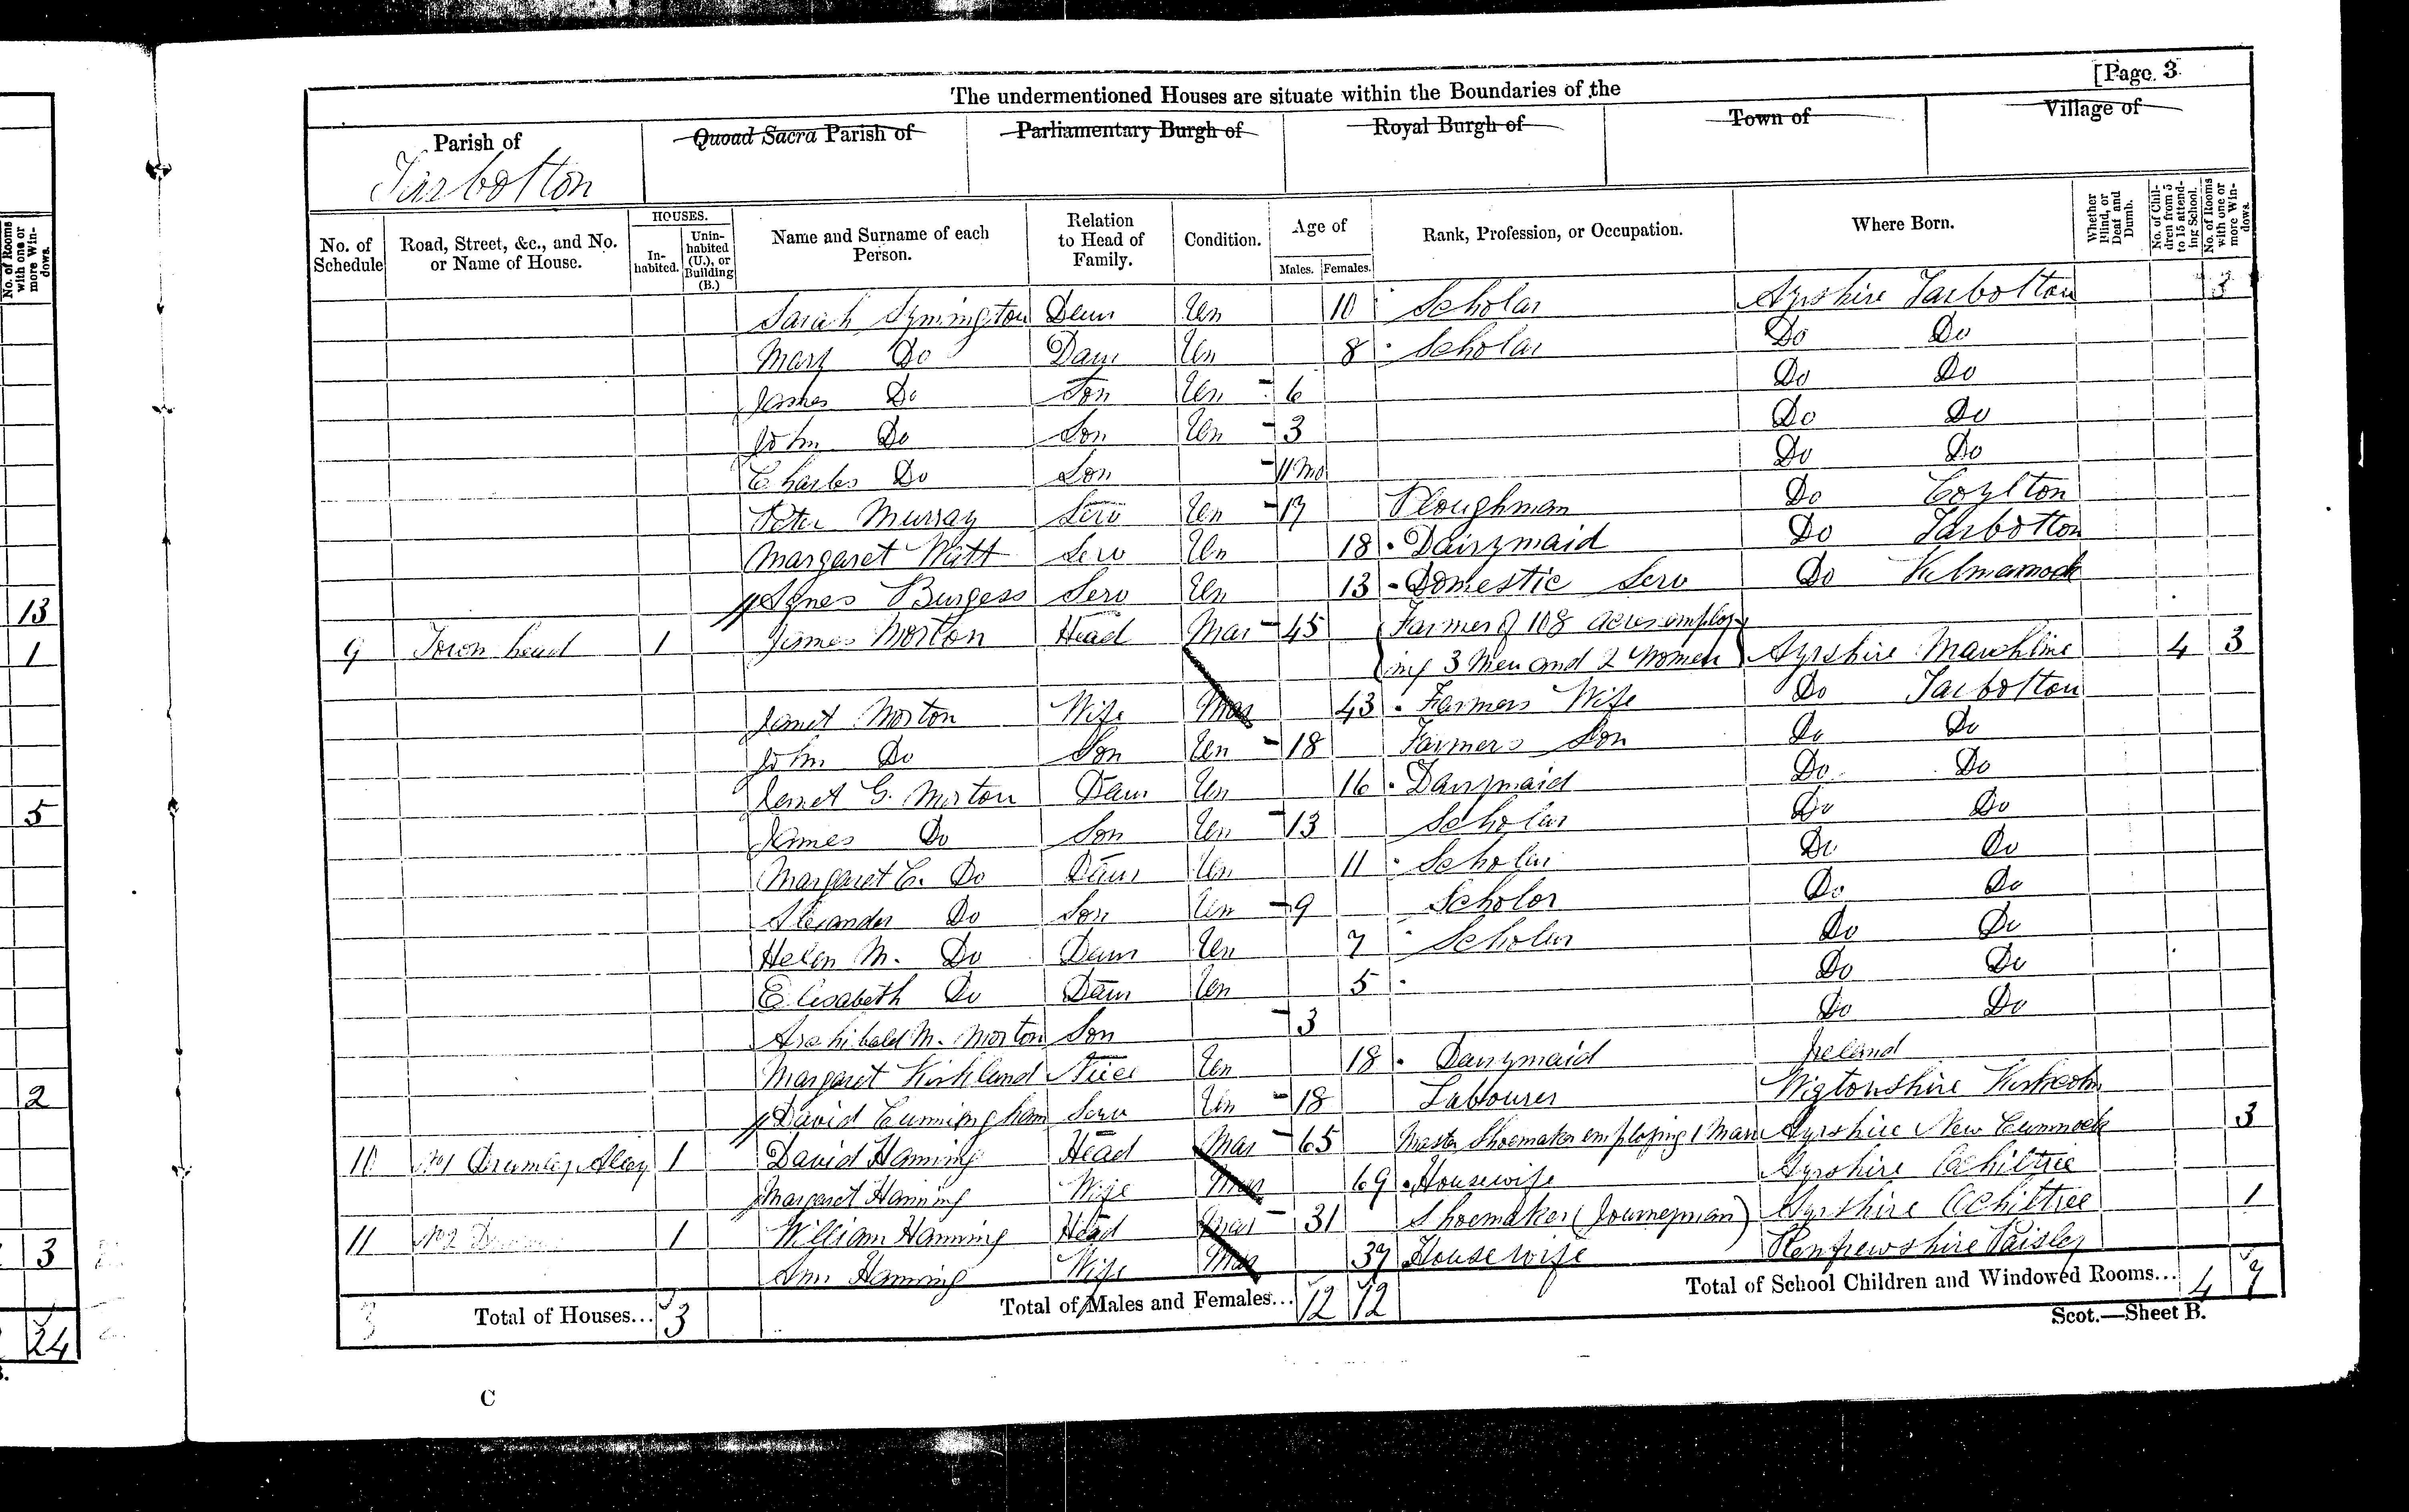 [Page. 3
The undermentioned Houses are situate within the Boundaries of the
Parish of Tarbolton
Quoad Sacra Parish of
Parliamentary Burgh of
Royal Burgh of
Town of
Village of
No. of Schedule
Road, Street, &c., and No. or Name of House.
HOUSES.
In-habited.
Unin-habited (U.), or Building (B.)
Name and Surname of each Person.
Relation to Head of Family.
Condition.
Age of
Males. Females.
Rank, Profession, or Occupation.
Where Born.
Whether Blind, or Deaf and Dumb.
No. of Chil-dren from 5 to 15 attend-ing School.
No. of Rooms with one or more Win-dows.
Sarah Symington Daur Un 10 Scholar Ayrshire Tarbolton 3
Mary Do Daur Un 8 Scholar Do Do
James Do Son Un 6 Do Do
John Do Son Un 3 Do Do
Charles Do Son 11 Mo Do Do
Peter Murray Serv Un Ploughman Do Coylton
Margaret Watt Serv Un 18 Dairymaid Do Tarbolton
Agnes Burgess Serv Un 13 Domestic Serv Do Kilmarnock
9 Townhead 1 James Morton Head Mar 45 Farmer of 108 acres employ
ing 3 Men and 2 Women Ayrshire Mauchline 4 3
Janet Morton Wife Mar 43 Farmers Wife Do Tarbolton
John Do Son Un 18 Farmers Son Do Do
Janet G. Morton Daur Un 16 Dairymaid Do Do
James Do Son Un 13 Scholar Do Do
Margaret C. Do Daur Un 11 Scholar Do Do
Alexander Do Son Un 9 Scholar Do Do
Helen M. Do Daur Un 7 Scholar Do Do
Elisabeth Do Daur Un 5 Do Do
Archibald M. Morton Son 3 Do Do
Margaret Kirkland Niece Un 18 Dairymaid Ireland
David Cunningham Serv Un 18 Labourer Wigtonshire Kirkcolm
10 No 1 Drumley 1 David Hanning Head Mar 65 Master Shoemaker employing 1 Man Ayrshire New Cumnock 3
Margaret Hanning Wife Mar 69 Housewife Ayrshire Ochiltree
11 No 2 1 William Hanning Head Mar 31 Shoemaker (Journeyman) Ayrshire Ochiltree 1
Ann Hanning Wife Mar 37 Housewife Renfrewshire Paisley
3 Total of Houses... 3 Total of Males and Females... 12 12 Total of School Children and Windowed Rooms... 4 7
Scot.—Sheet B.
C
No. of Rooms with one or more Win-dows.
13
1
5
2
3
24